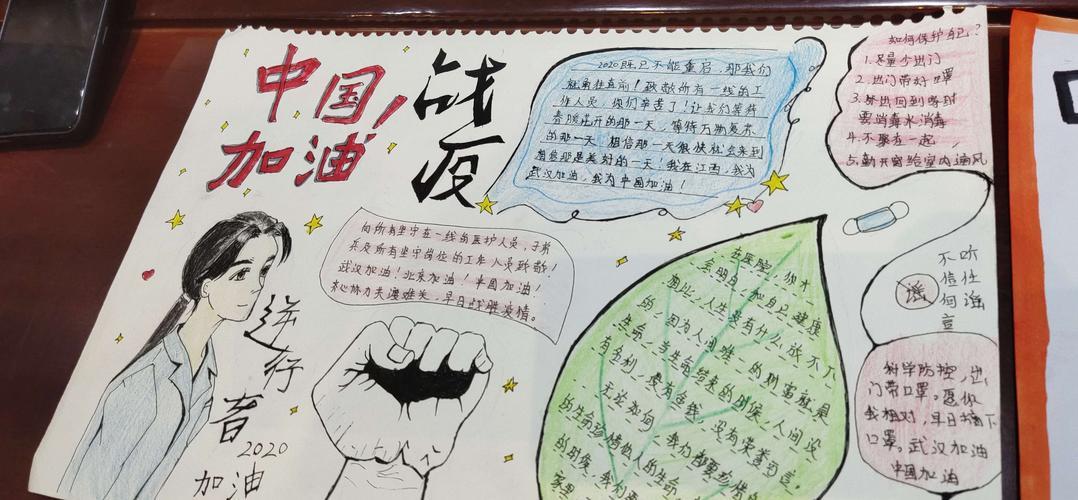 中国
加油
战
疫
2020既已不能重启,那我们
就勇往直前!致敬所有一线的工
作人员,你们辛苦了!让我们等待
春暖花开的那一天,等待万物复苏
的那一天,相信那一天很快就会来到
相信那是美好的一天!我在江西,我为
武汉加油,我为中国加油!
如何保护自己?
1.尽量少出门
2.出门带好口罩
3.外出回到家时
要消毒水消毒
4.不聚在一起,
5.勤开窗给室内通风
向所有坚守在一线的医护人员,子弟
兵及所有坚守岗位的工作人员致敬!
武汉加油!北京加油!中国加油!
齐心协力共渡难关,早日战胜疫情。
逆
行
者
2020
加油
在医院,你才
会明白,和自己健康
相比,人生没有什么放不下
的,因为人间唯一的财富就是
生命,当生命结束的时候,人间没
有名利,没有金钱,没有荣誉可言。
无论如何,我们都要珍惜自
的生命珍惜他人的生命
的时候,我们要
家里
不听
信任
何谣
言
谣
科学防控,出
门带口罩。愿你
我相对,早日摘下
口罩。武汉加油
中国加油